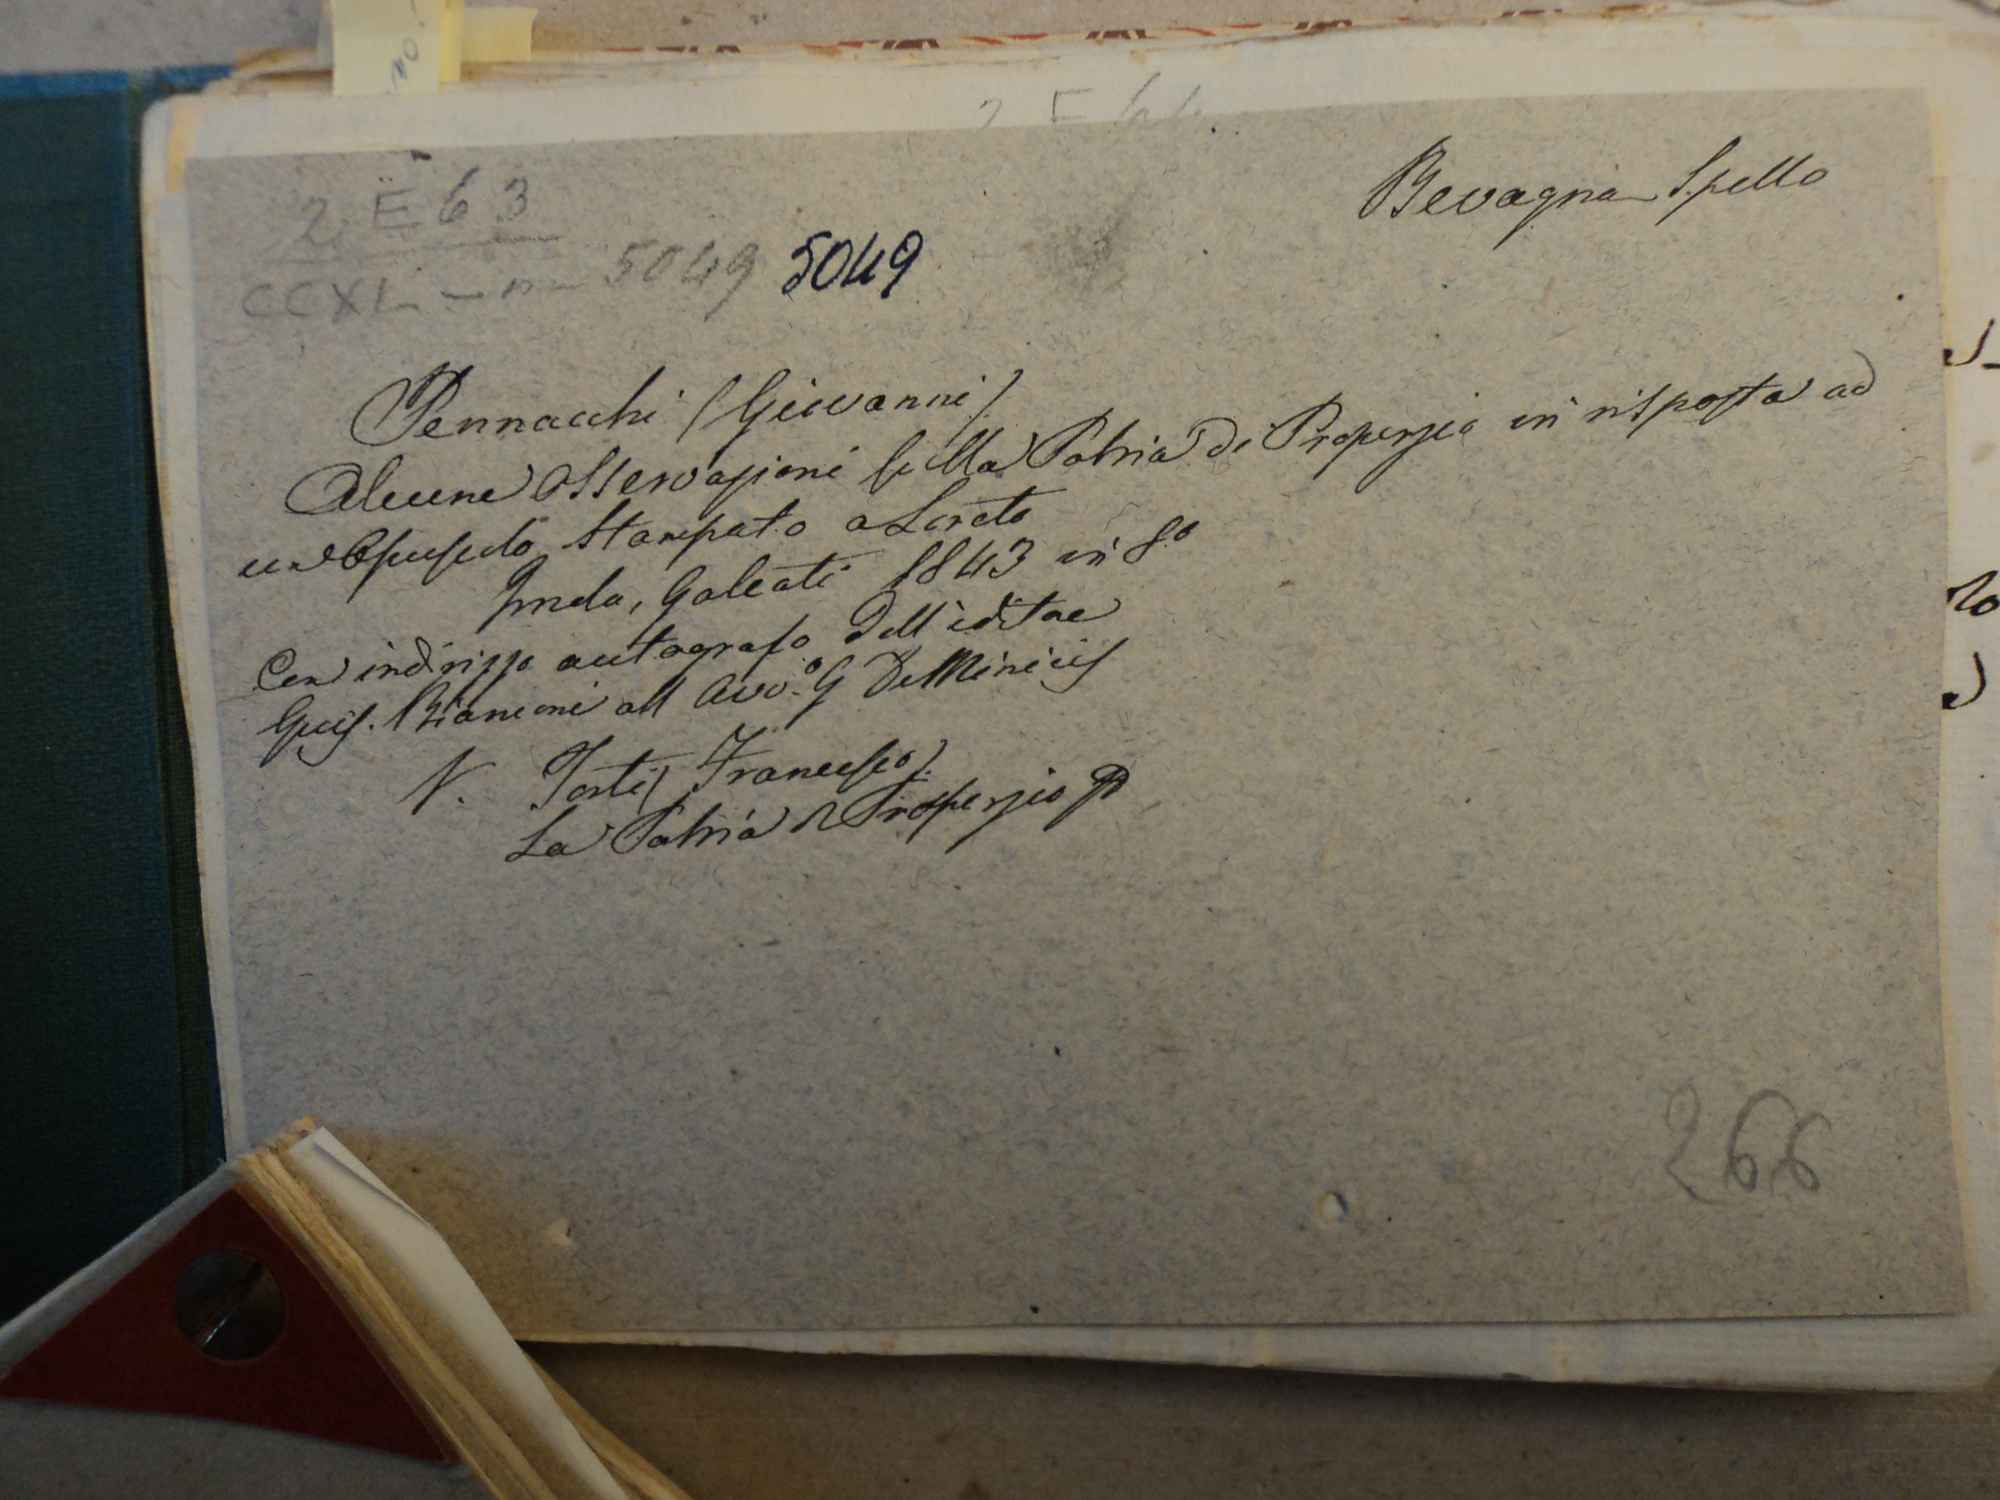 Bevagna Spello
2 E 63
CCXL - 5049 5049
Pennacchi (Giovanni)
Alcune osservazioni sulla Patria di Properzio in risposta ad
un Opuscolo stampato a Loreto
Imola, Galeati 1843 in 8.º
Con indirizzo autografo dell'editore
Gius. Bianconi all Avv.º G De Minicis
V. Torti (Francesco).
La Patria di Properzio
266